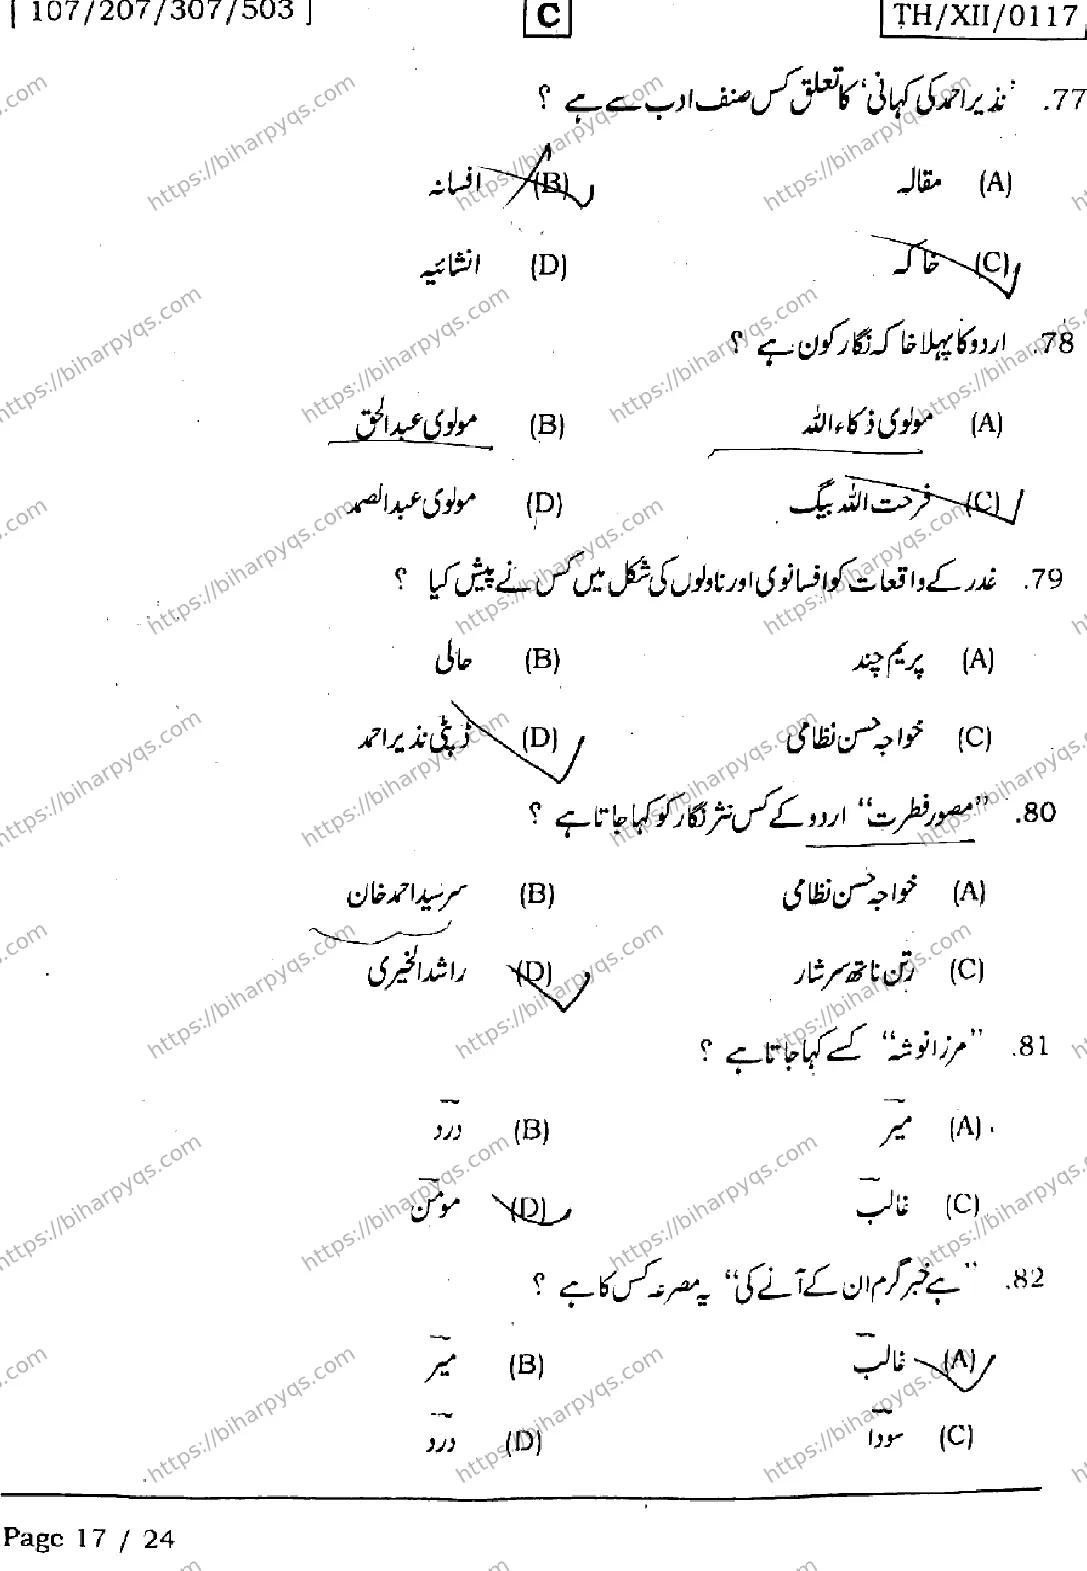 [ 107/207/307/503 ] C TH/XII/0117
77. 'نذیر احمد کی کہانی' کا تعلق کس صنف ادب سے ہے ؟
(A) مقالہ (B) افسانہ
(C) خاکہ (D) انشائیہ
78. اردو کا پہلا خاکہ نگار کون ہے ؟
(A) مولوی ذکاء اللہ (B) مولوی عبدالحق
(C) فرحت اللہ بیگ (D) مولوی عبدالصمد
79. غدر کے واقعات کو افسانوی اور ناولوں کی شکل میں کس نے پیش کیا ؟
(A) پریم چند (B) حالی
(C) خواجہ حسن نظامی (D) ڈپٹی نذیر احمد
80. "مصور فطرت" اردو کے کس نثر نگار کو کہا جاتا ہے ؟
(A) خواجہ حسن نظامی (B) سرسید احمد خان
(C) رتن ناتھ سرشار (D) راشد الخیری
81. "مرزا نوشہ" کسے کہا جاتا ہے ؟
(A) میر (B) درد
(C) غالب (D) مومن
82. "ہے خبر گرم ان کے آنے کی" یہ مصرعہ کس کا ہے ؟
(A) غالب (B) میر
(C) سودا (D) درد
Page 17 / 24
https://biharpyqs.com